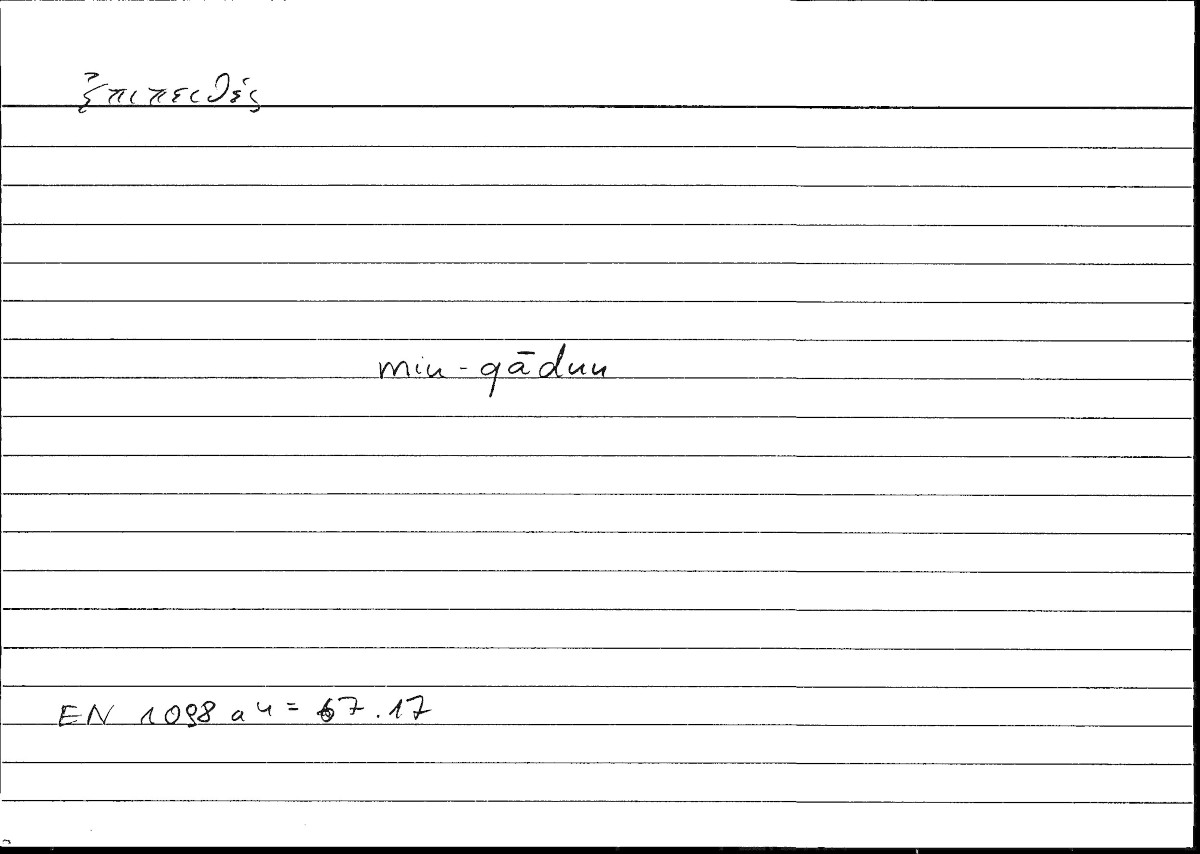 ἐπιπειθές
min-qādun
EN 1098 a 4 = 67.17